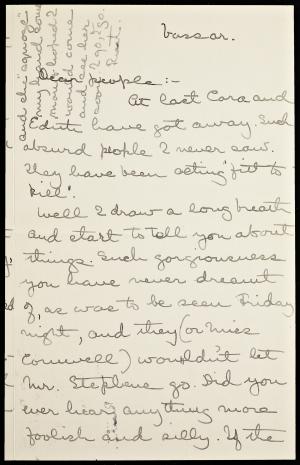 Vassar.
Dear people:-
At last Cora and
Edith have got away. Such
absurd people I never saw.
They have been acting "fit to
kill".
Well I draw a long breath
and start to tell you about
things. Such gorgiousness
you have never dreamt
of, as was to be seen Friday
night, and they (or Miss
Cornwell) wouldn't let
Mr. Stephens go. Did you
ever hear anything more
foolish and silly. If the
and she
my hand and
she hoped I
would come
and see her